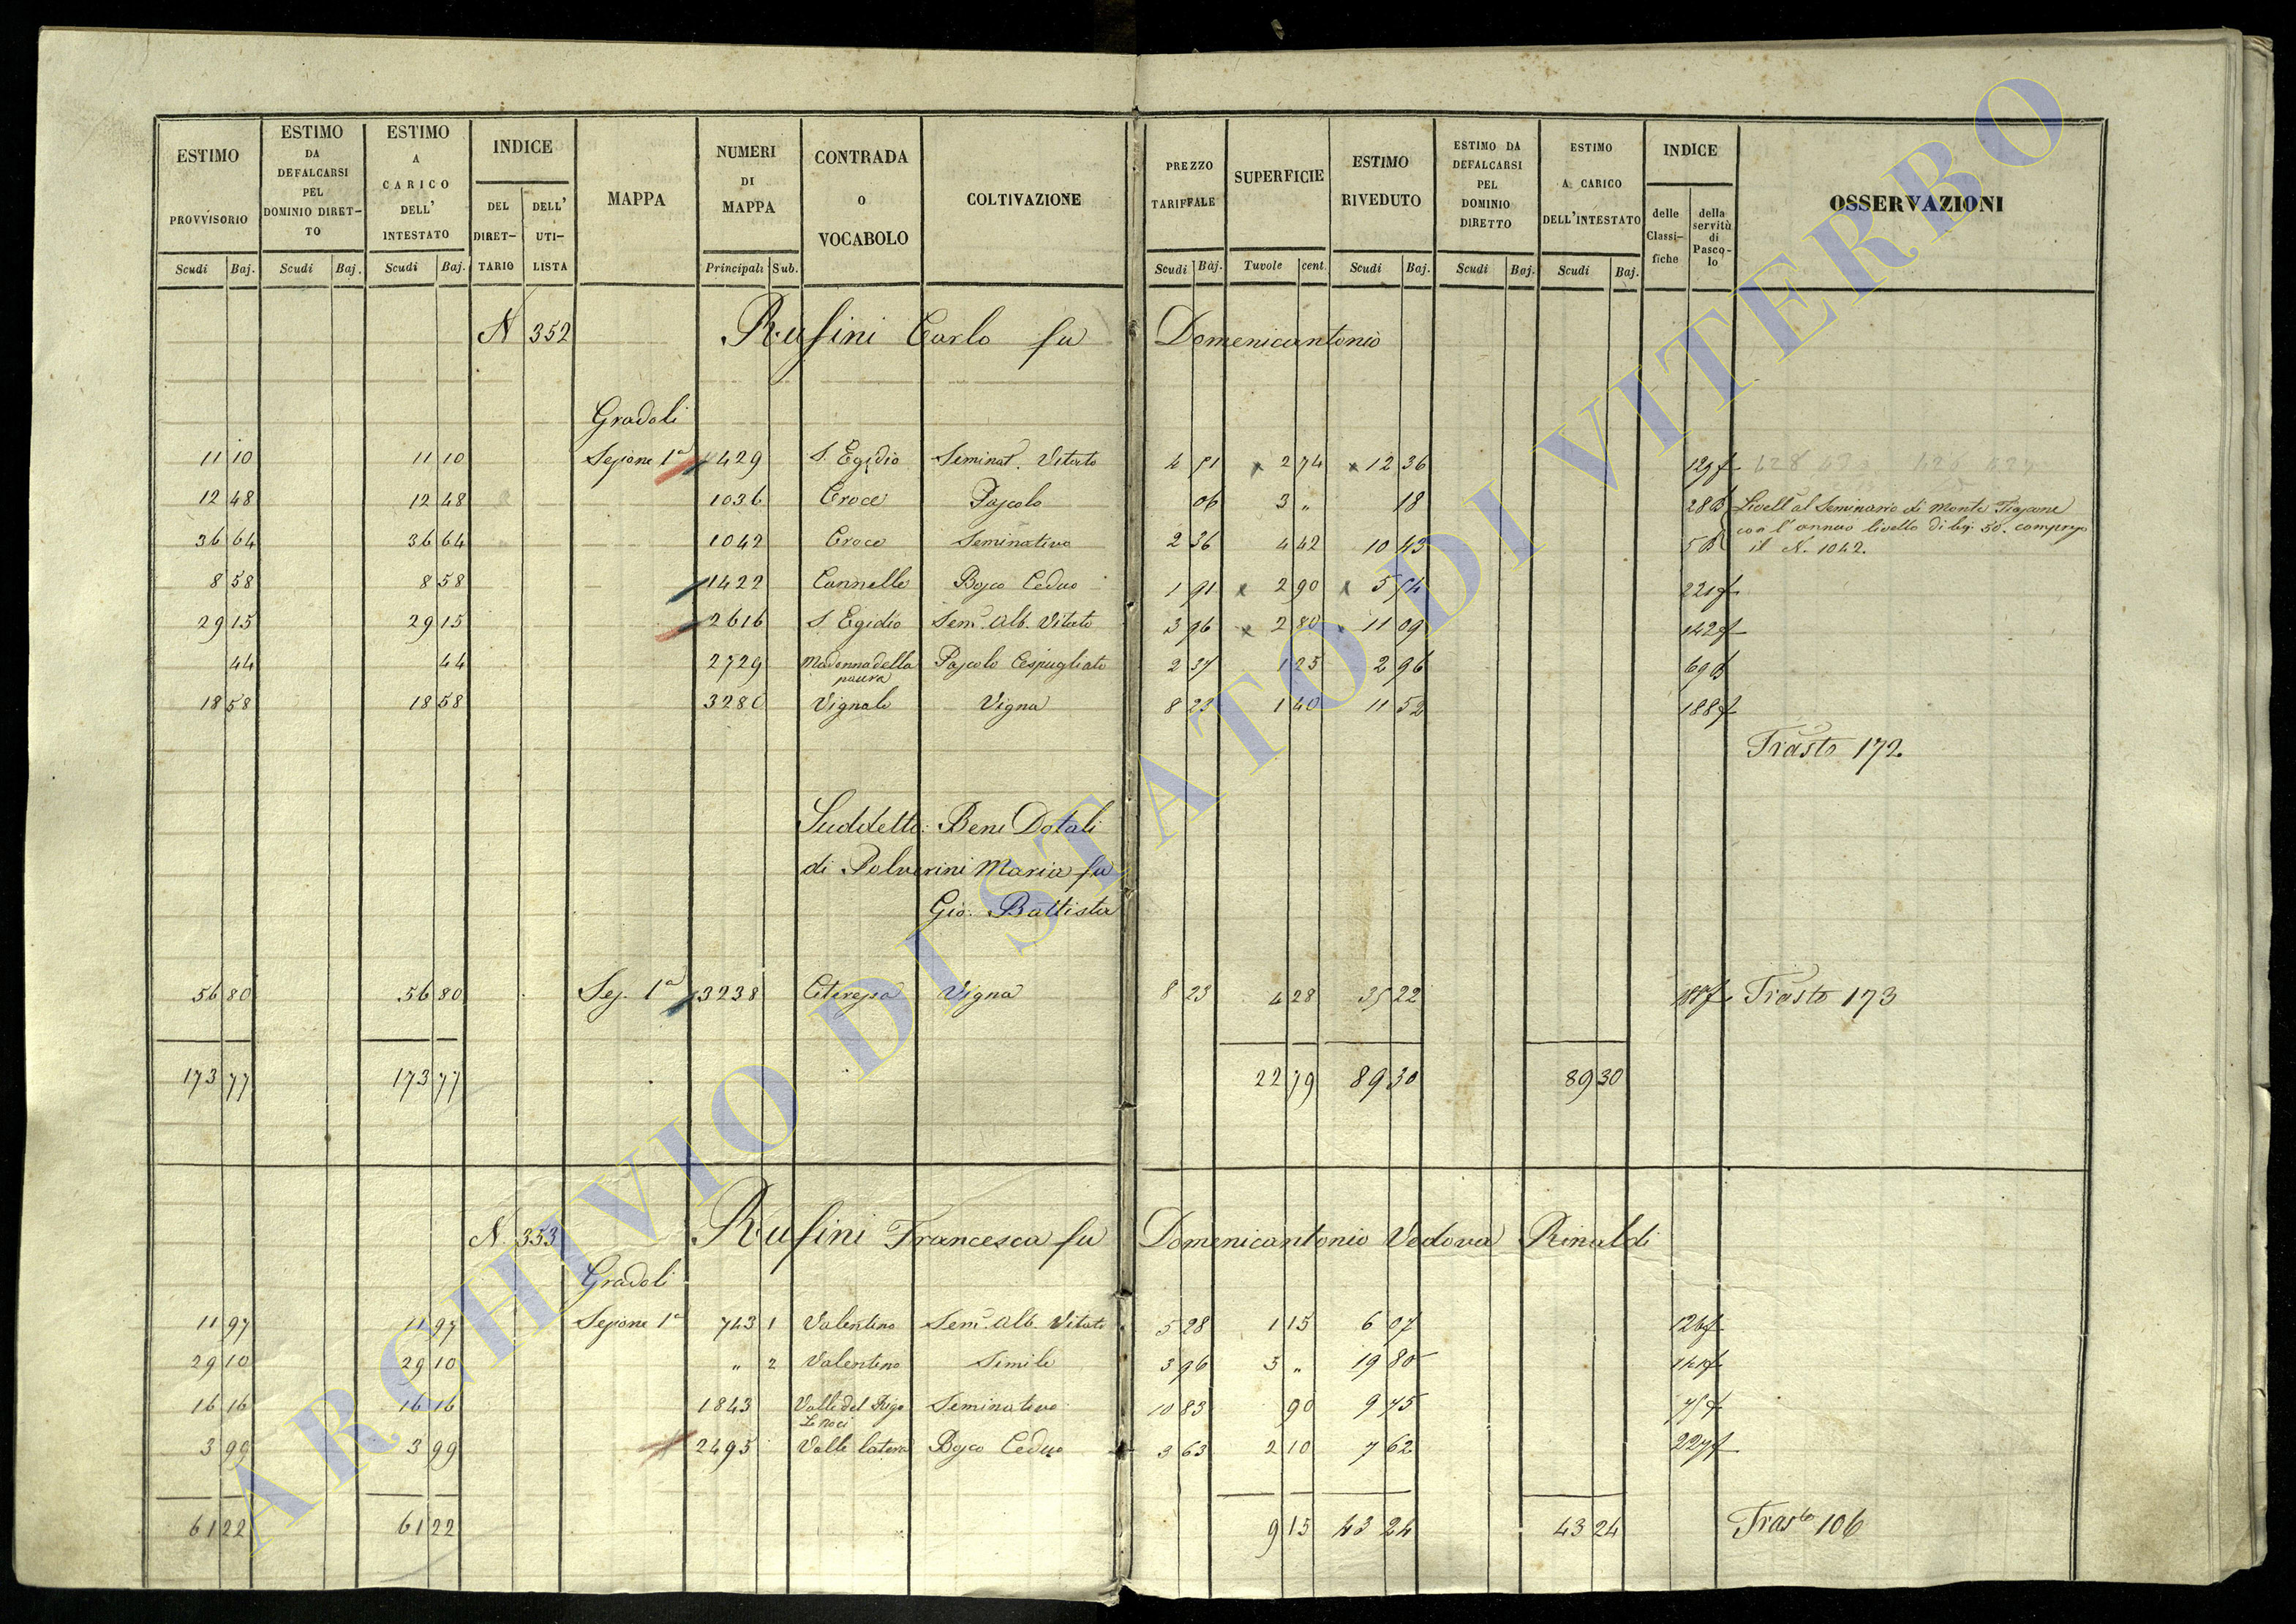 ESTIMO PROVVISORIO Scudi Baj. | ESTIMO DA DEFALCARSI PEL DOMINIO DIRET-TO Scudi Baj. | ESTIMO A CARICO DELL' INTESTATO Scudi Baj. | INDICE DEL DIRET-TARIO DELL' UTI-LISTA | MAPPA | NUMERI DI MAPPA Principali Sub. | CONTRADA O VOCABOLO | COLTIVAZIONE | PREZZO TARIFFALE Scudi Baj. | SUPERFICIE Tavole cent. | ESTIMO RIVEDUTO Scudi Baj. | ESTIMO DA DEFALCARSI PEL DOMINIO DIRETTO Scudi Baj. | ESTIMO A CARICO DELL'INTESTATO Scudi Baj. | INDICE delle Classi-fiche della servitù di Pasco-lo | OSSERVAZIONI
N 352 Rufini Carlo fu Domenicantonio
Gradoli
11 10 11 10 Sezione 1a 429 S. Egidio Seminat. Vitato 4 51 2 74 12 36 129f
12 48 12 48 1036 Croce Pascolo 06 3 " 18 28B Livello al Seminario di Monte Fiascone
con l'annuo livello di baj. 50. compreso
36 64 36 64 1042 Croce Seminativo 2 36 4 42 10 43 5B il N. 1042.
8 58 8 58 1422 Cannelle Bosco Ceduo 1 91 2 90 5 54 221f
29 15 29 15 2616 S. Egidio Sem. Alb. Vitato 3 96 2 80 11 09 142f
44 44 2729 Madonna della Pascolo Cespugliato 2 37 1 25 2 96 69B
paura
18 58 18 58 3280 Vignale Vigna 8 23 1 40 11 52 188f
Trasto 172
Suddetto: Beni Dotali
di Polverini Maria fu
Gio: Battista
56 80 56 80 Sez. 1a 3238 Vigna 8 23 4 28 35 22 188f Trasto 173
173 77 173 77 22 79 89 30 89 30
N. 353 Rufini Francesca fu Domenicantonio Vedova Rinaldi
Gradoli
11 97 11 97 Sezione 1a 743 1 Valentino Sem. Alb. Vitato 5 28 1 15 6 07 126f
29 10 29 10 " 2 Valentino Simile 3 96 5 " 19 80
16 16 16 16 1843 Valle del Rigo Seminativo 10 83 90 9 75
Le Noci
3 99 3 99 2495 Valle latera Bosco Ceduo 3 63 2 10 7 62 227f
61 22 61 22 9 15 43 24 43 24 Trasto 106
ARCHIVIO DI STATO DI VITERBO